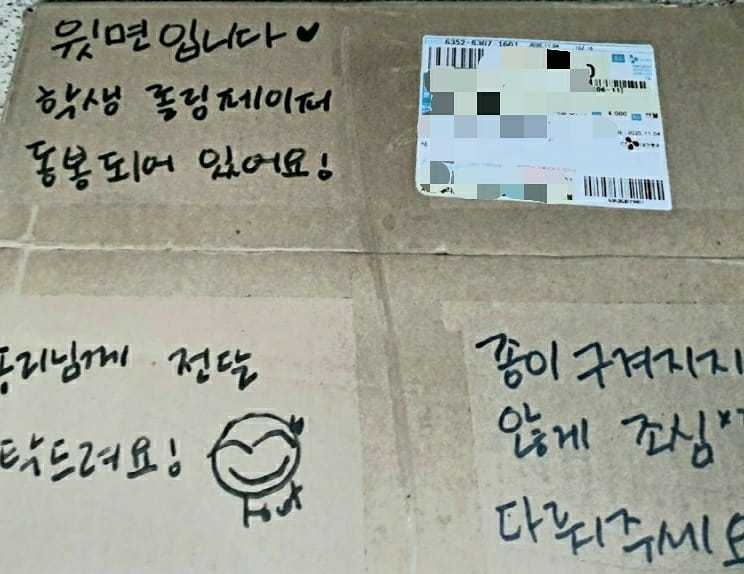 윗면입니다♥
학생 롤링페이퍼
동봉되어 있어요!
6352-6307-1601
4,000
전달
탁드려요!
종이 구겨지지
않게 조심
다뤄주세요